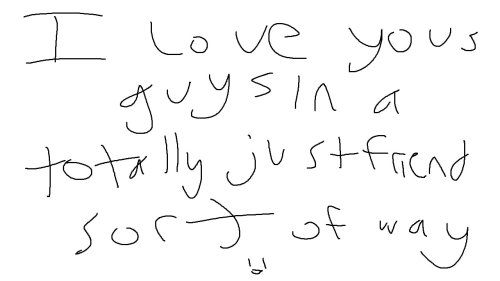 I Love yous
guys in a
totally just friend
sort of way